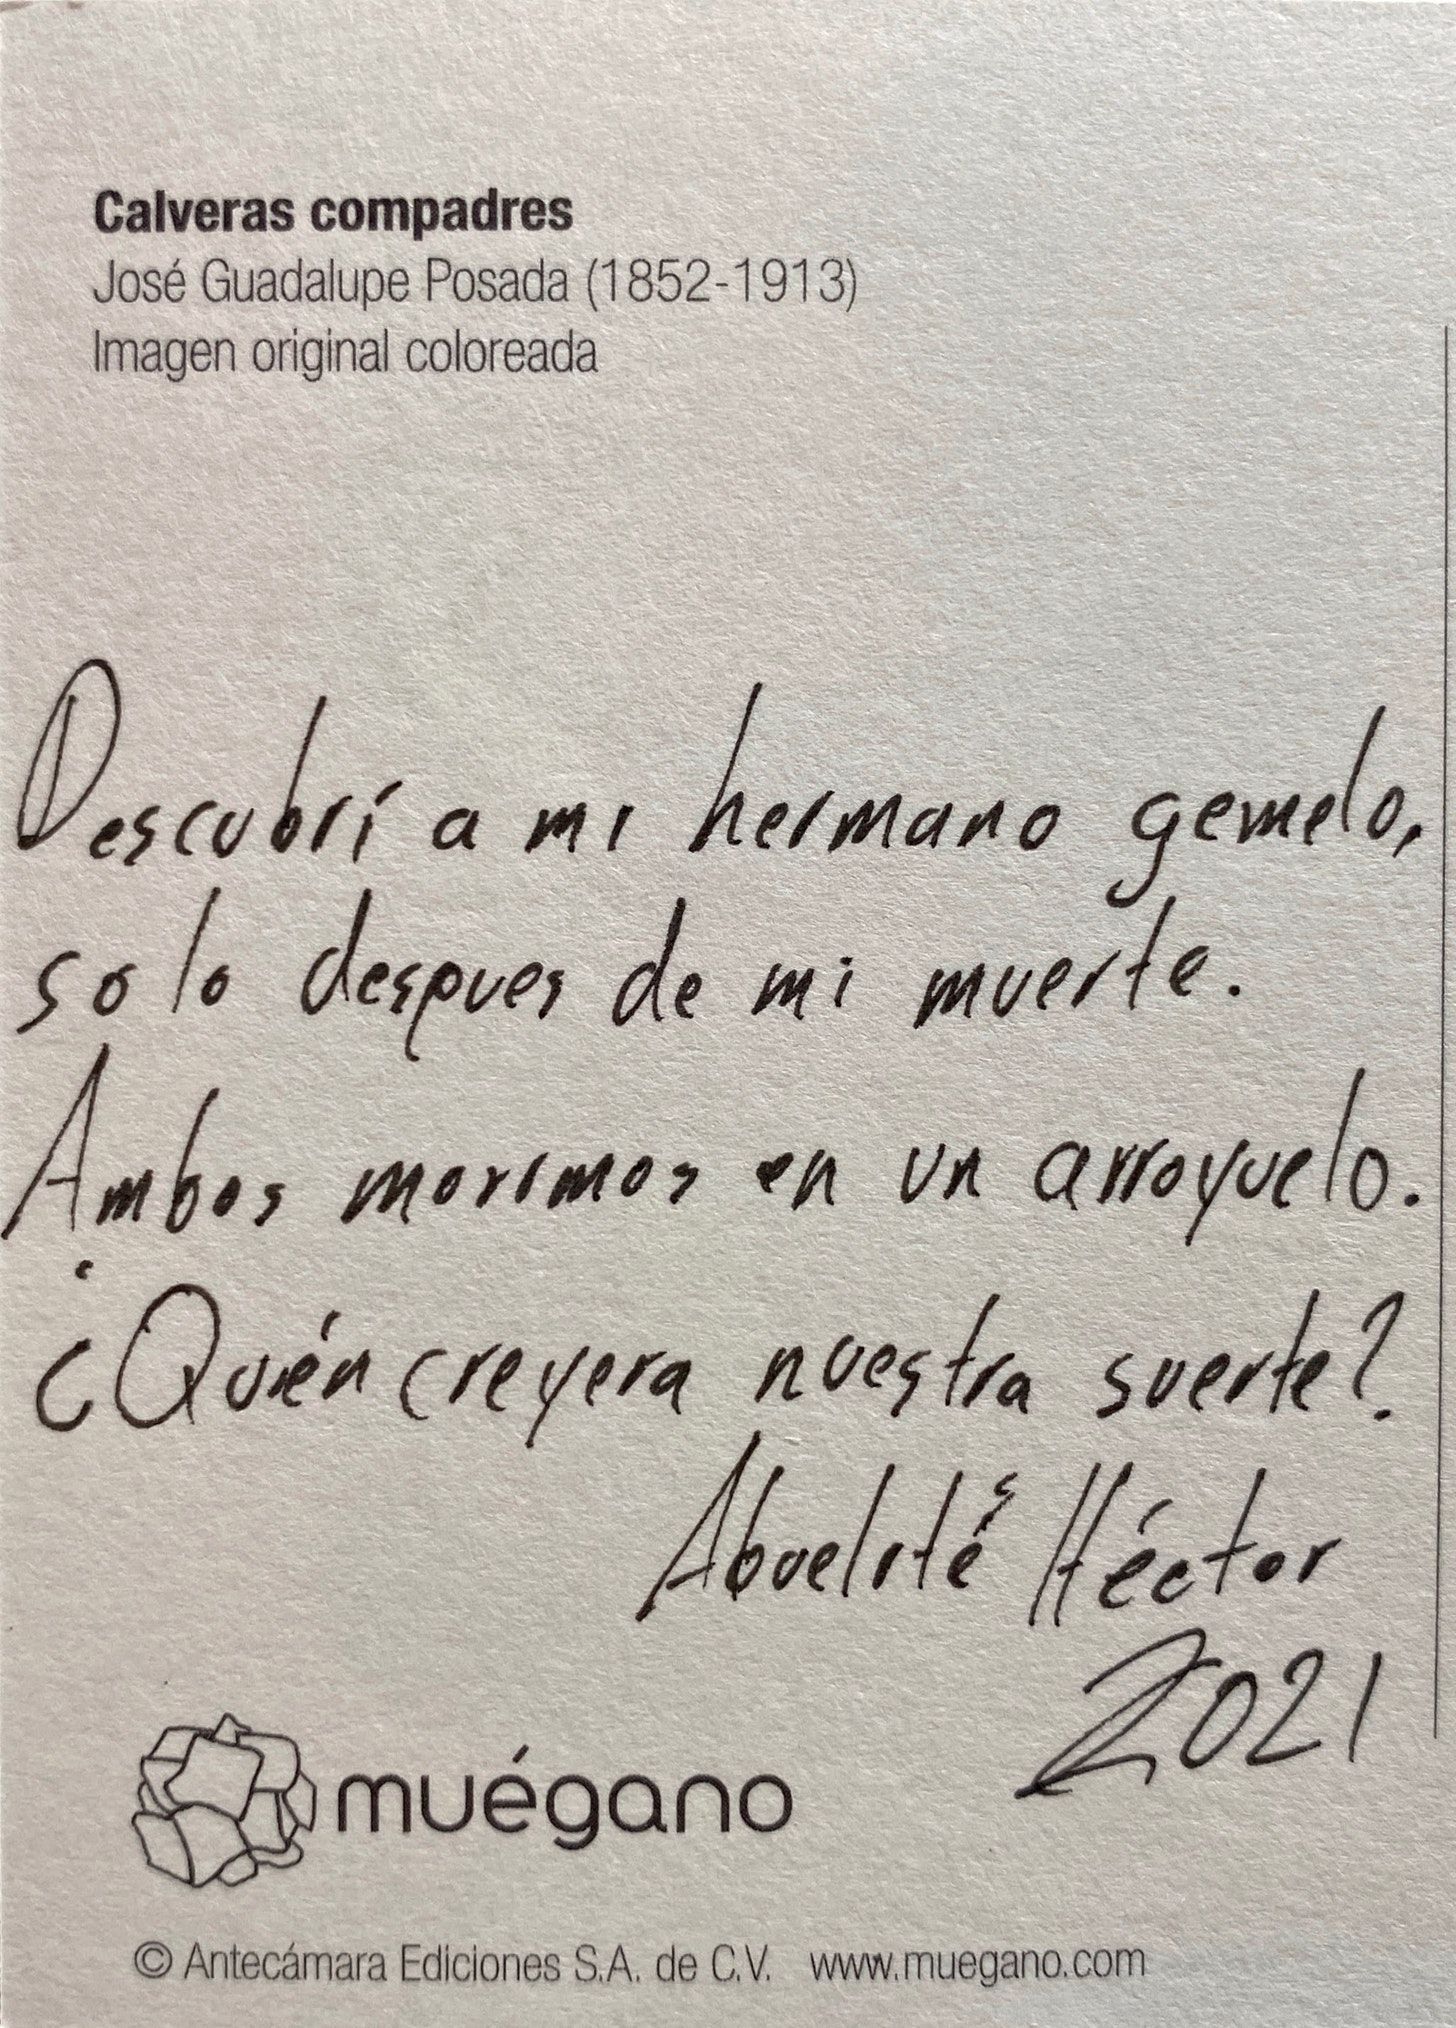 Calveras compadres
José Guadalupe Posada (1852-1913)
Imagen original coloreada
Descubrí a mi hermano gemelo,
solo despues de mi muerte.
Ambos morimos en un arroyuelo.
¿Quién creyera nuestra suerte?
Héctor
2021
muégano
© Antecámara Ediciones S.A. de C.V. www.muegano.com